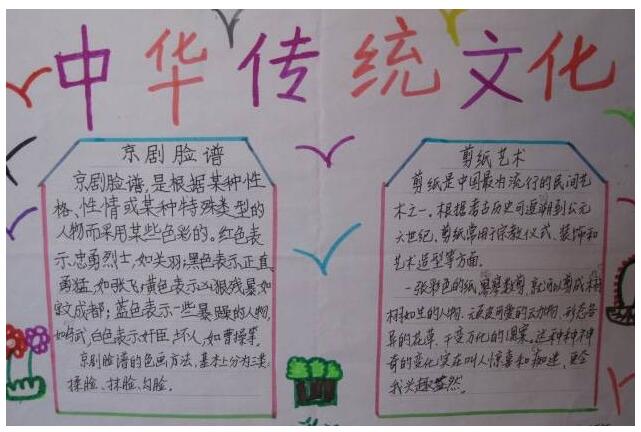 中华传统文化
京剧脸谱
京剧脸谱,是根据某种性
格、性情或某种特殊类型的
人物而采用某些色彩的。红色表
示忠勇烈士,如关羽;黑色表示正直、
勇猛,如张飞;黄色表示凶狠残暴如
成都;蓝色表示一些暴躁的人物,
白色表示奸臣、坏人,如曹操等。
京剧脸谱的色画方法,基本上分为三类:
揉脸、抹脸、勾脸。
剪纸艺术
剪纸是中国最为流行的民间艺
术之一,根据考古历史可追溯到公元
六世纪,剪纸常用于宗教仪式、装饰和
艺术造型等方面。
一张彩色的纸,就可以剪成栩
栩如生的人物、可爱的动物、形态各
异的花草、千变万化的图案。这种种神
奇的变化实在叫人惊喜和痴迷,更令
我兴趣盎然。